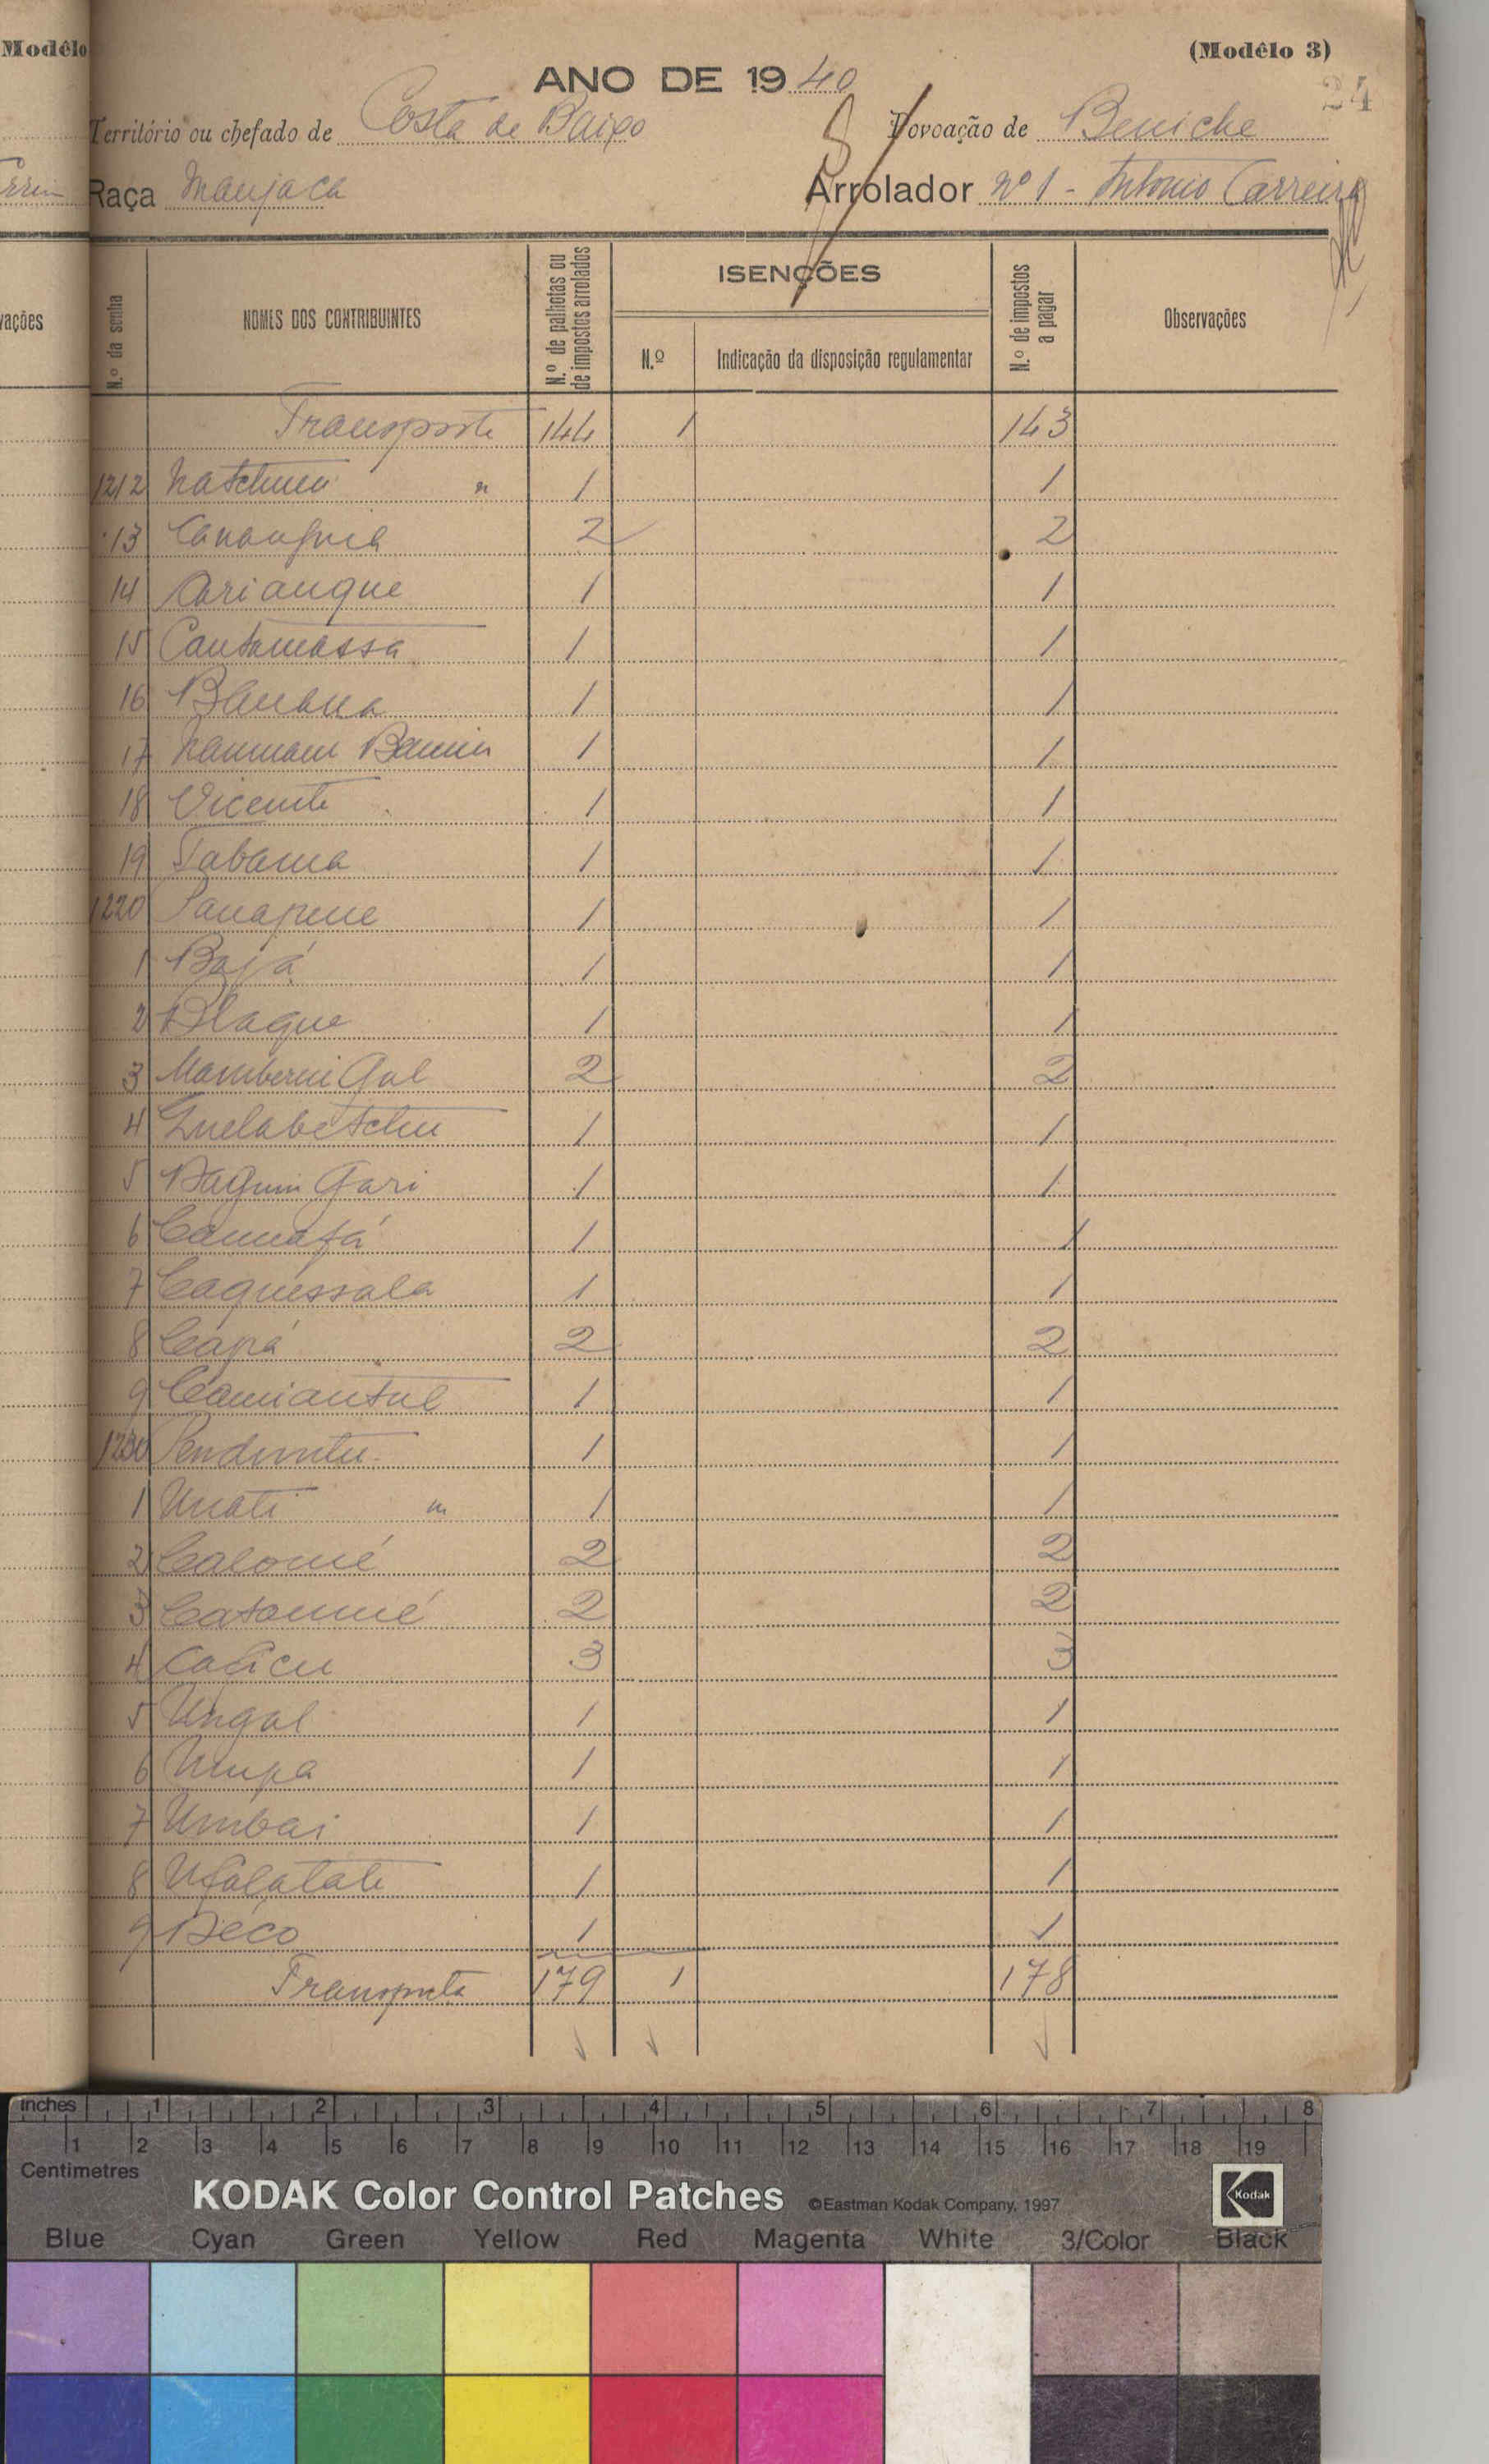 Modêlo
(Modêlo 3)
24
ANO DE 1940
Território ou chefado de Costa de Baixo
Povoação de Beniche
Raça Manjaca
Arrolador nº 1 - Antonio Carreira
vações
N.º da senha
NOMES DOS CONTRIBUINTES
N.º de palhotas ou de impostos arrolados
ISENÇÕES
N.º
Indicação da disposição regulamentar
N.º de impostos a pagar
Observações
Transporte 144 1 143
1212 1 1
13 2 2
14 Arianque 1 1
15 Cantamassa 1 1
16 Banana 1 1
17 1 1
18 Vicente 1 1
19 Tabama 1 1
1220 1 1
1 Bajá 1 1
2 Blaque 1 1
3 2 2
4 1 1
5 Gari 1 1
6 1 1
7 Caquessala 1 1
8 Capá 2 2
9 Camiantul 1 1
1230 1 1
1 Unati 1 1
2 Calomé 2 2
3 2 2
4 3 3
5 Ungal 1 1
6 1 1
7 Umbai 1 1
8 Ufalatate 1 1
9 Deco 1 1
Transporte 179 1 178
inches 1 2 3 4 5 6 7 8
1 2 3 4 5 6 7 8 9 10 11 12 13 14 15 16 17 18 19
Centimetres
KODAK Color Control Patches ©Eastman Kodak Company, 1997 Kodak
Blue Cyan Green Yellow Red Magenta White 3/Color Black